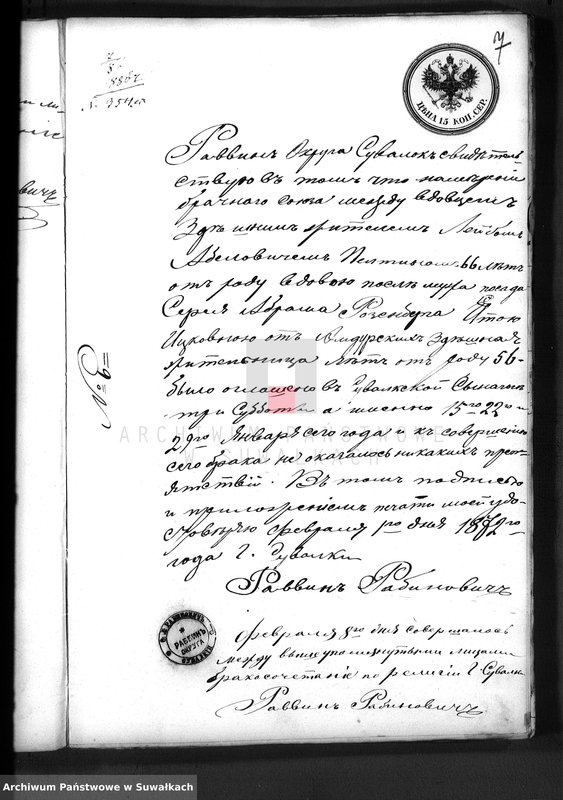 7
ЦѢНА 15 КОП. СЕР.
№ 954
Раввинъ Округа Сувалокъ свидѣтель
ствую въ томъ что намѣреніи
брачнаго союза между вдовцемъ
Здѣшнимъ жителемъ Лейбомъ
Абеловичемъ 66 лѣтъ
отъ роду вдовою послѣ мужа посада
Абрама Розенберга Етою
Ицковною отъ Здѣшная
жительница лѣтъ отъ роду 56
было оглашено въ Сувалкской Синагогѣ
три Субботы а именно 15го 22го и
29го Января сего года и къ совершенію
сего брака не оказалось никакихъ препя
ятствій. Въ томъ подписью
и приложеніемъ печати моей удо
стовѣряю Февраля 1го дня 1872го
года Г. Сувалки
Раввинъ Рабиновичъ
№ 6
РАВВИНЪ
ОКРУГА
Февраля 8го дня совершалось
между вышеупомянутыми лицами
бракосочетаніе по религіи Г. Сувалки
Раввинъ Рабиновичъ
ARCHIWUM PAŃSTWOWE
W SUWAŁKACH
Archiwum Państwowe w Suwałkach